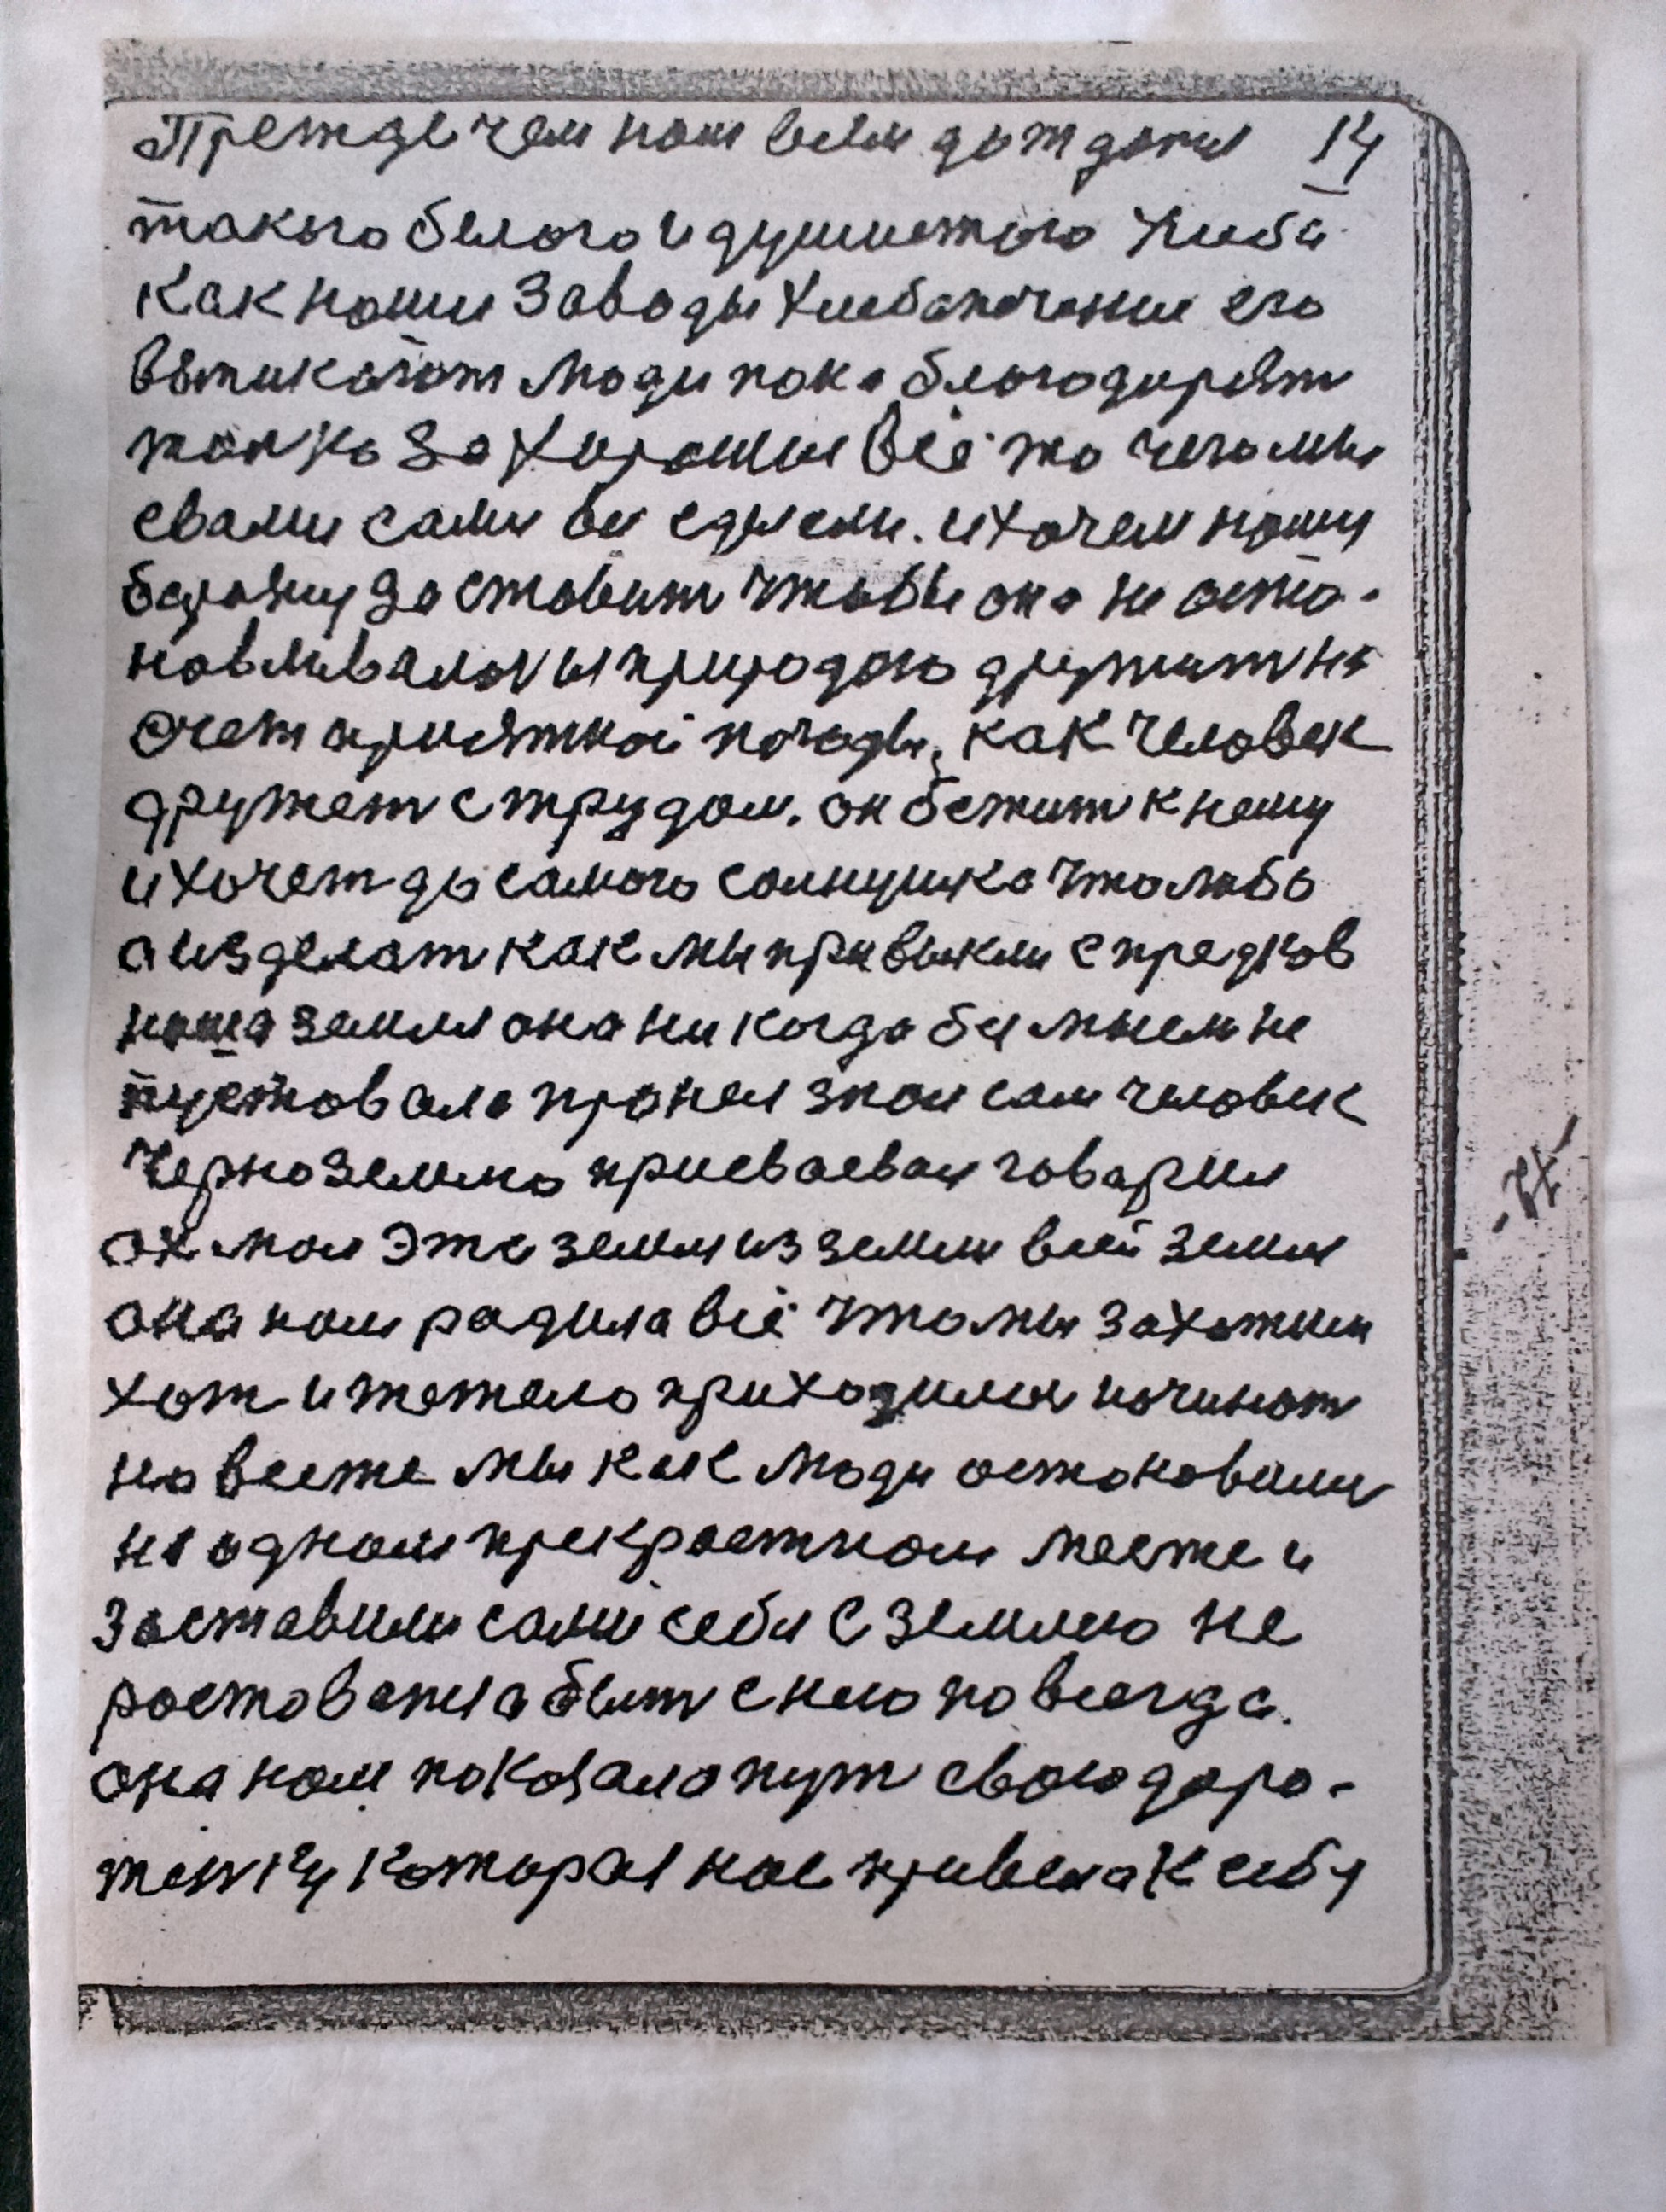 Прежде чем нам всем дождаться 14
такого белого и душистого хлеба
как наши заводы хлебапечение его
выпикают люди пока благодарят
толко за хорошие всё то чего мы
свами сами все едим. и хочем нашу
барану заставит чтобы она не оста-
навливалас и природою дружит на
счет приятной погоды, как человек
дружет с трудом. он бежит к нему
и хочет до самого солнушка что либо
а изделат как мы привыкли с предков
наша земля она ни когда бурянем не
пустовала сам человек
Черноземлю присваевая говарил
ох моя эта земля из земли всей земля
она нам радила всё что мы захотим
хот и тежело приходился начинат
но все же мы как люди остоновили
на одном прекрастном месте и
заставили сами себя с землею не
роставатся а быт с нею повсегда.
она нам показала пут свою доро-
женку которая нас привела к себу